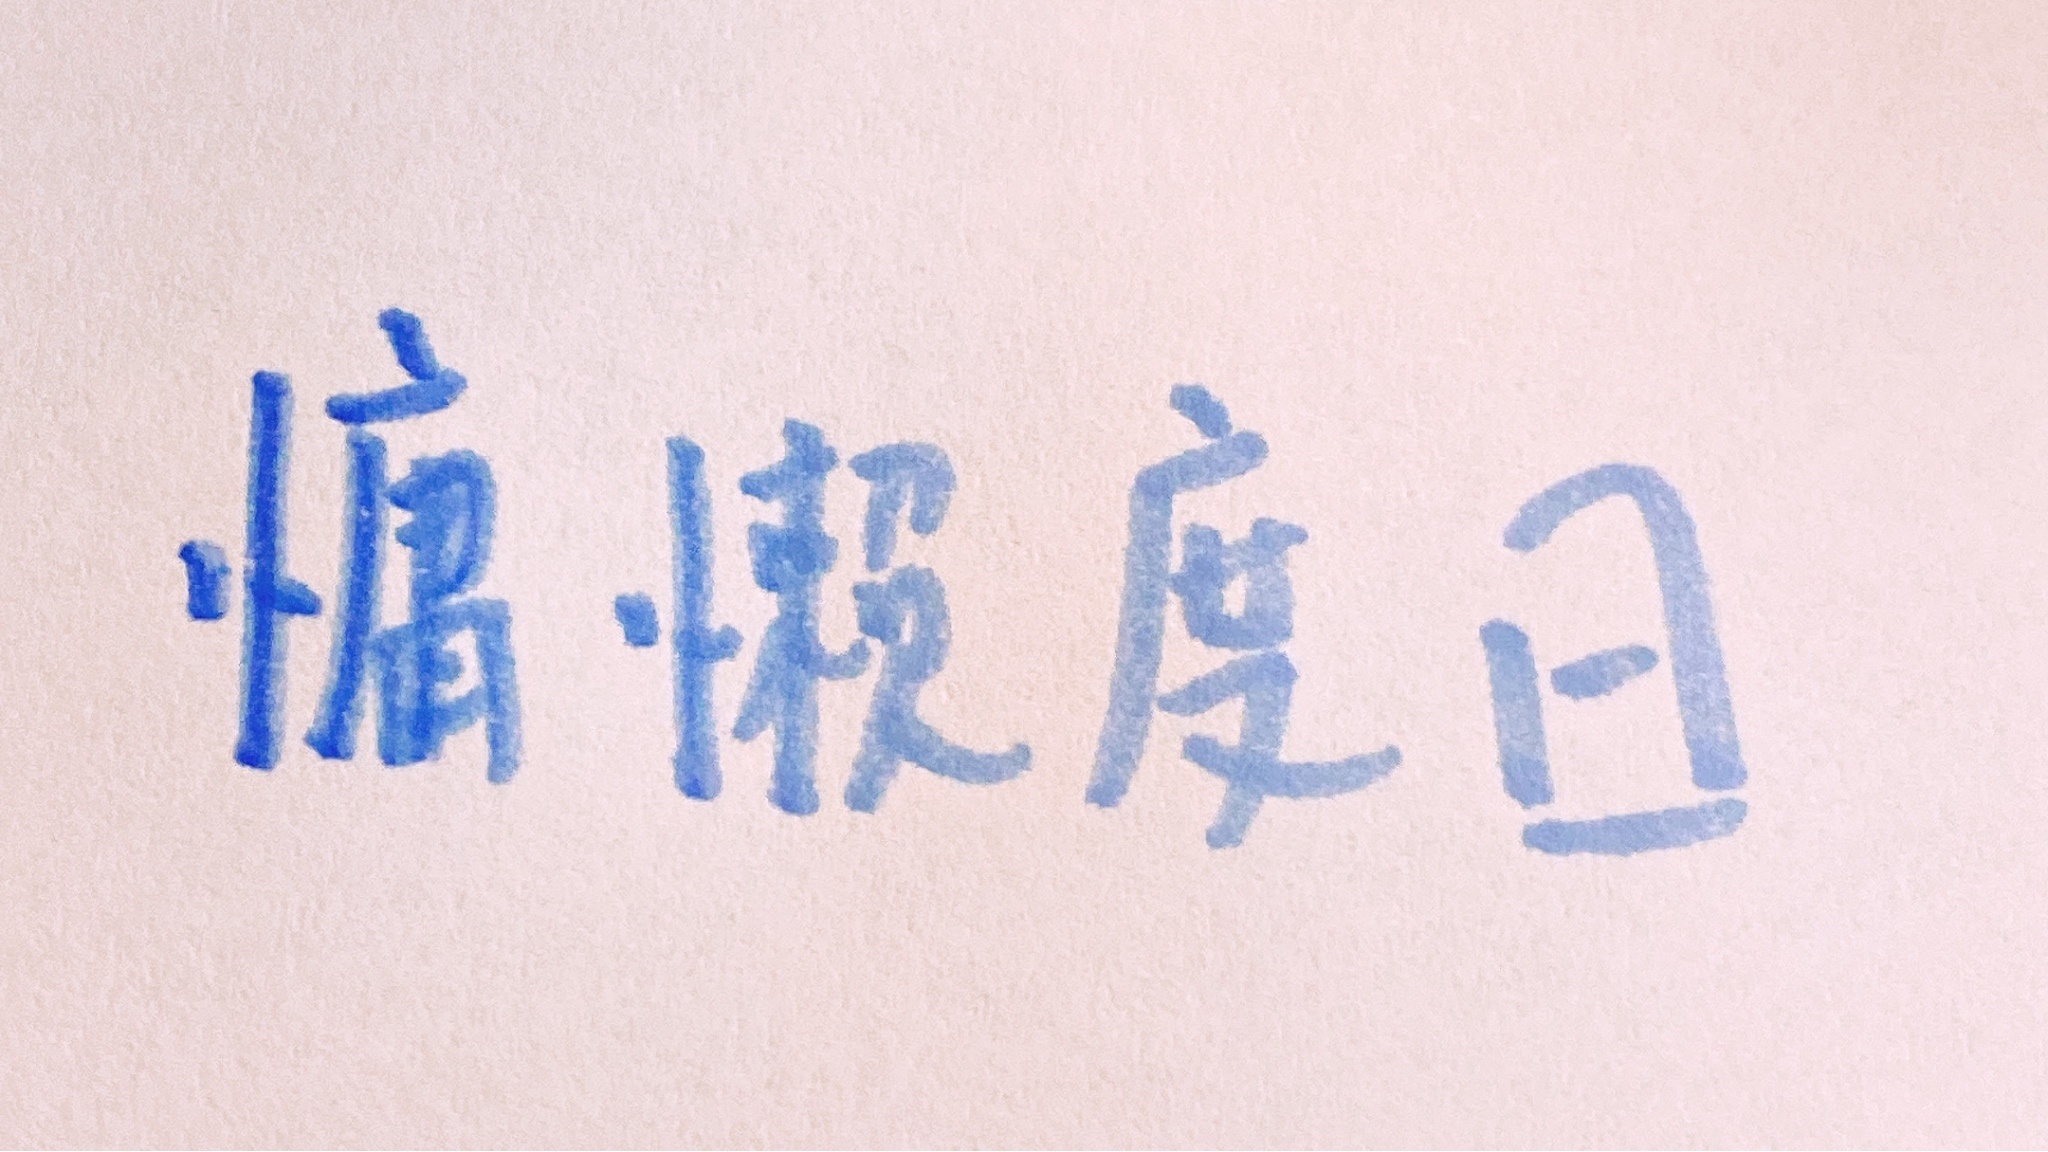 慵懒度日